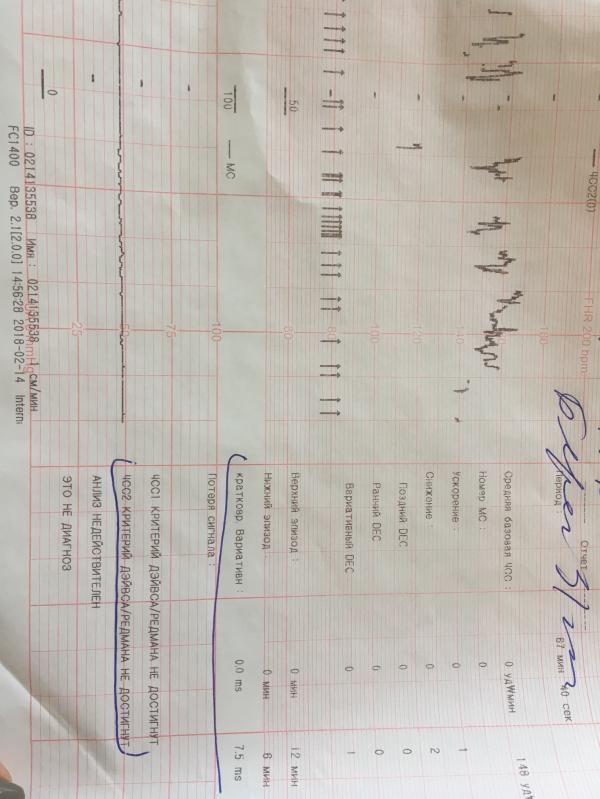 ЧСС2(0)
FHR 200 bpm
Отчет
период
67 мин 40 сек
Средняя базовая ЧСС : 0 уд/мин 148 уд/
Номер МС : 0
Ускорение : 0 1
Снижение 0 2
Поздний DEC 0 0
Ранний DEC 0 0
Вариативный DEC 0 1
Верхний эпизод : 0 мин 12 мин
Нижний эпизод : 0 мин 6 мин
кратковр. Вариативн : 0.0 ms 7.5 ms
Потеря сигнала :
ЧСС1 КРИТЕРИЙ ДЭЙВСА/РЕДМАНА НЕ ДОСТИГНУТ
ЧСС2 КРИТЕРИЙ ДЭЙВСА/РЕДМАНА НЕ ДОСТИГНУТ
АНЛИЗ НЕДЕЙСТВИТЕЛЕН
ЭТО НЕ ДИАГНОЗ
180
140
120
100
80
60
50
100
МС
100
75
50
25
0
mmHg
1 см/мин
ID : 0214135538 Имя : 0214135538
FC1400 Вер. 2.1[2.0.0] 14:56:28 2018-02-14 Intern